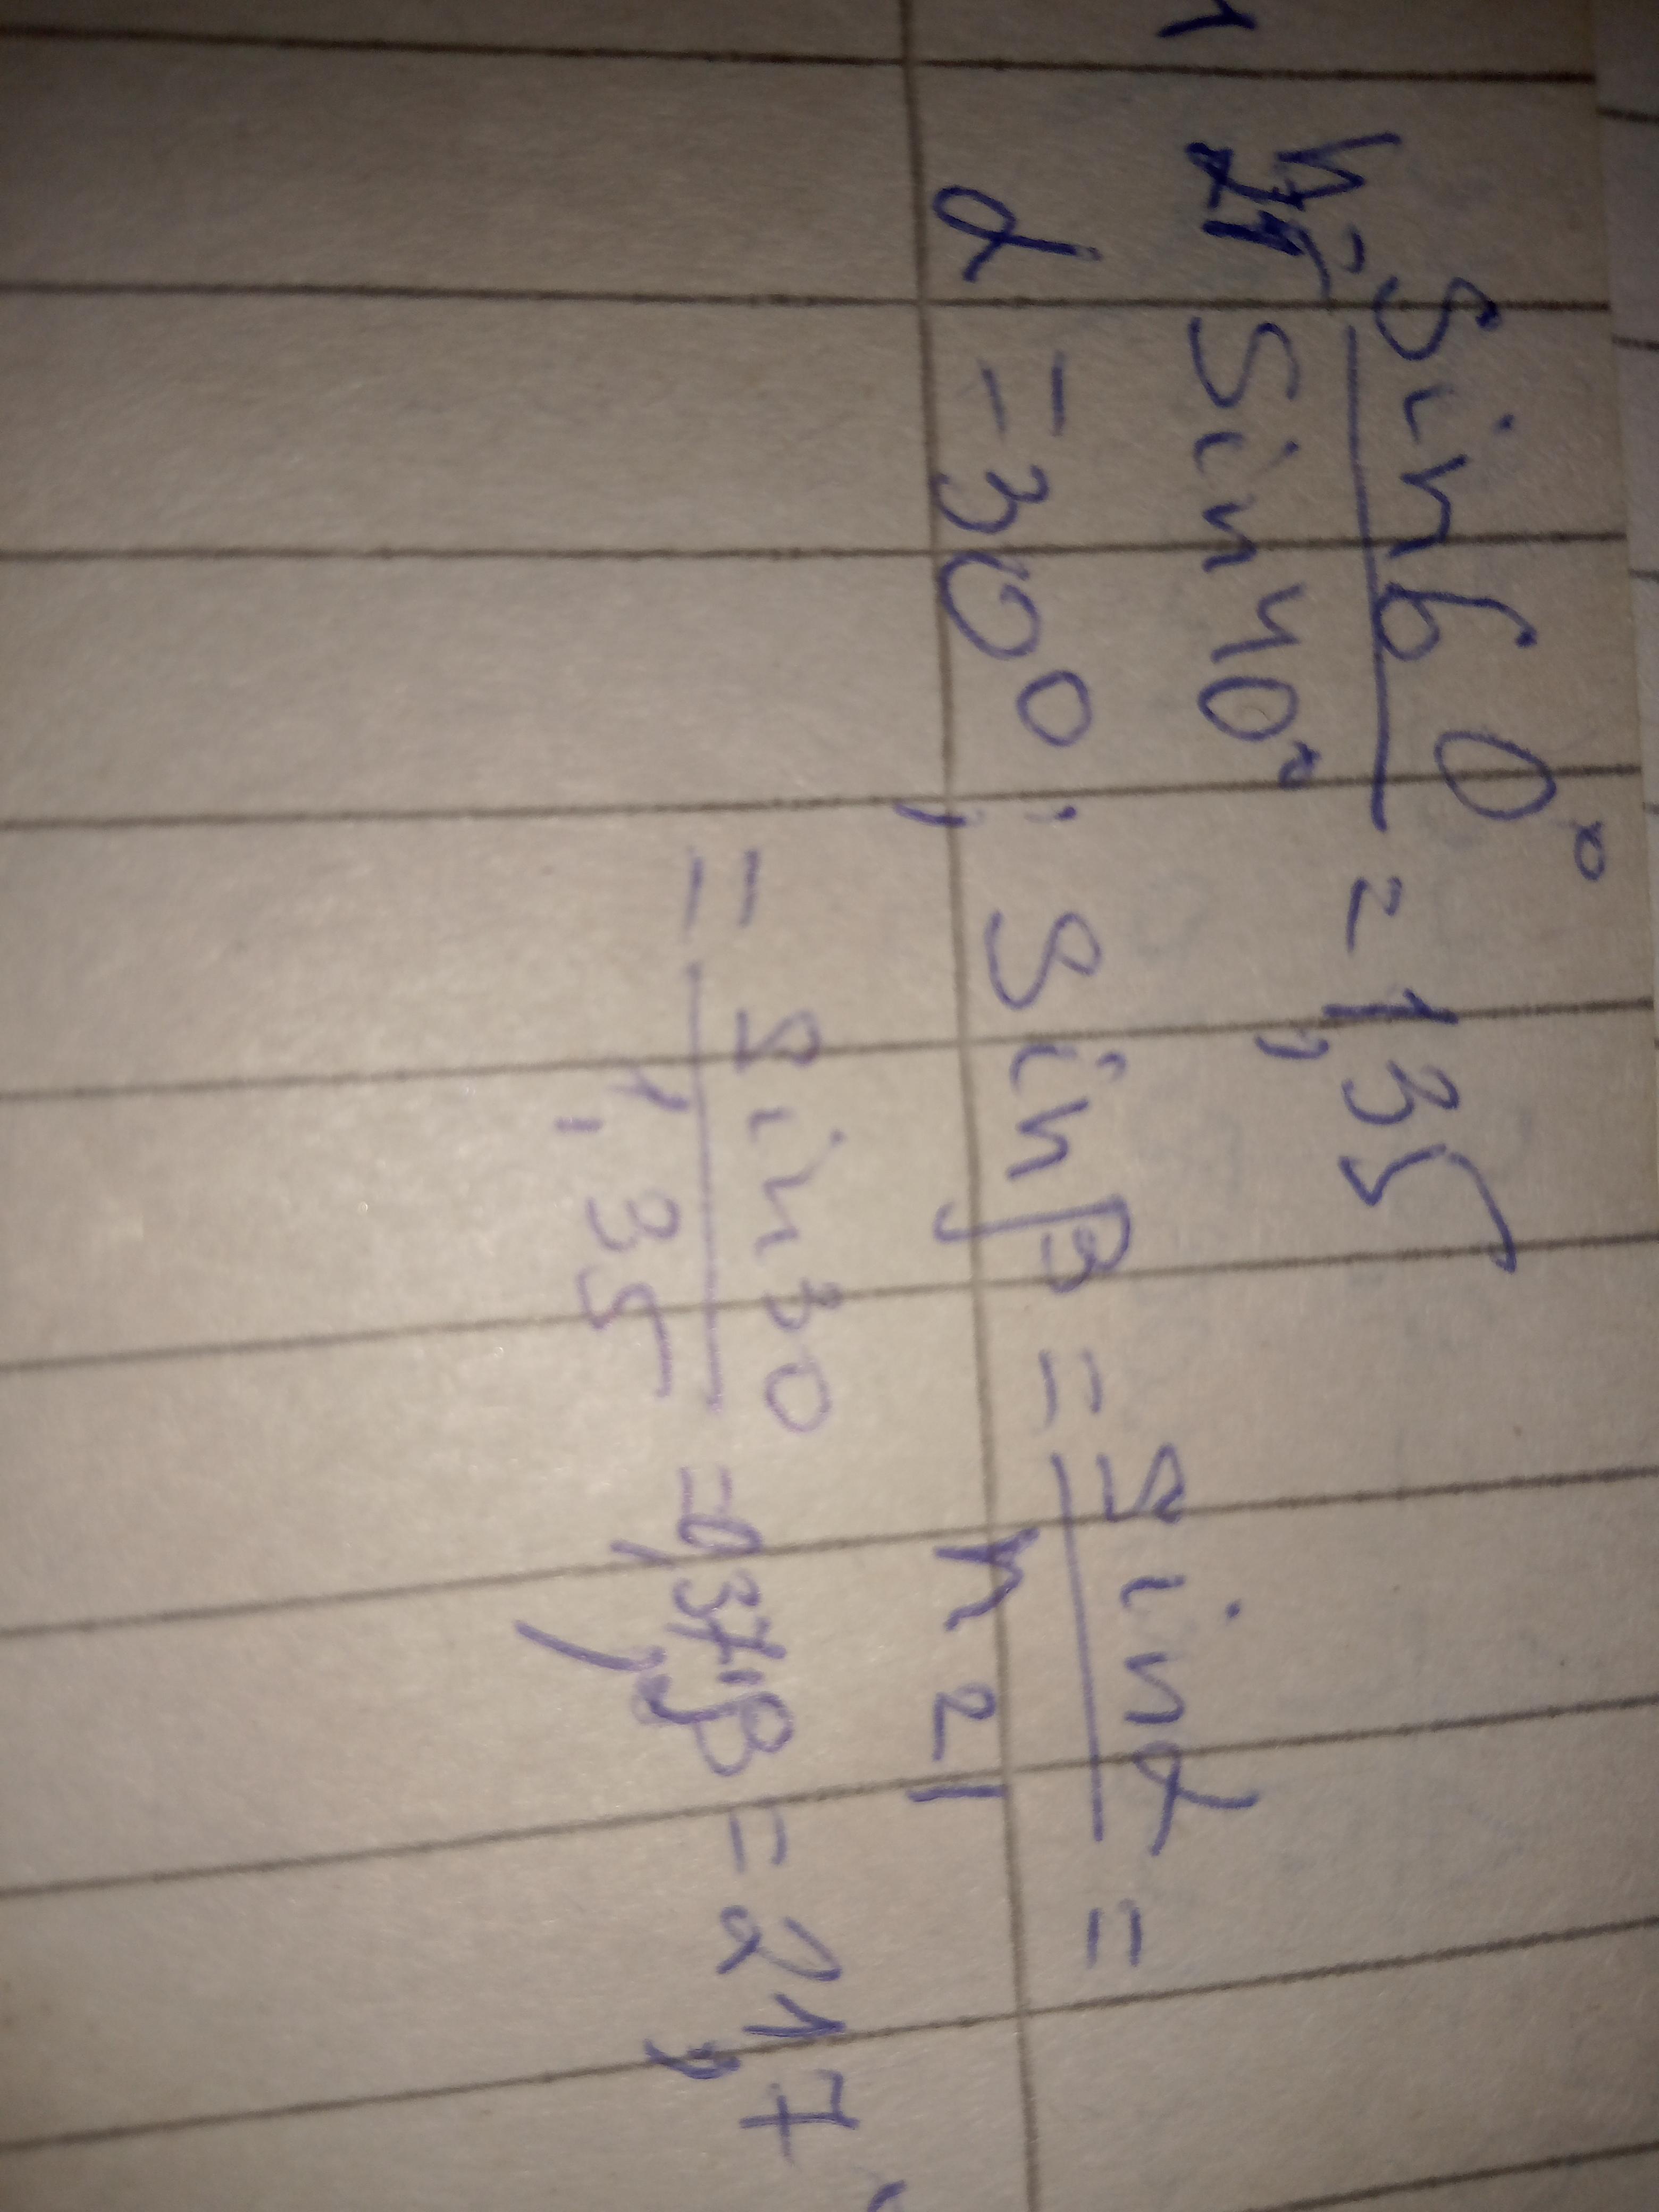 n₂₁ = sin60° / sin40° = 1,35
α = 30°; sinβ = sinα / n₂₁ =
= sin30 / 1,35 = 0,37; β = 21,7°